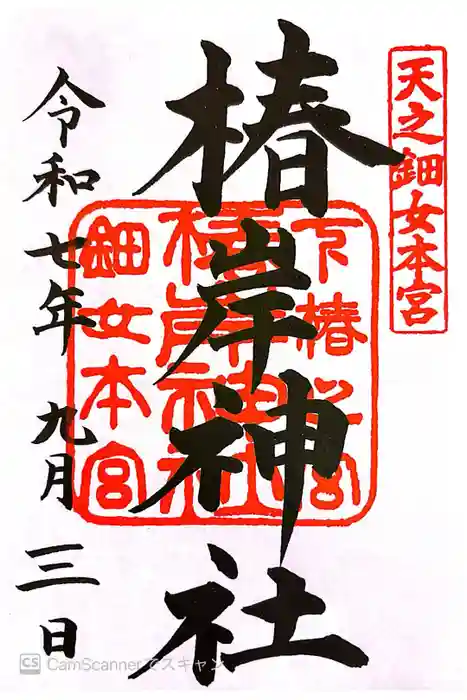 天之鈿女本宮
椿岸神社
下椿
椿岸神社
鈿女本宮
令和七年九月三日
CS CamScannerでスキャン